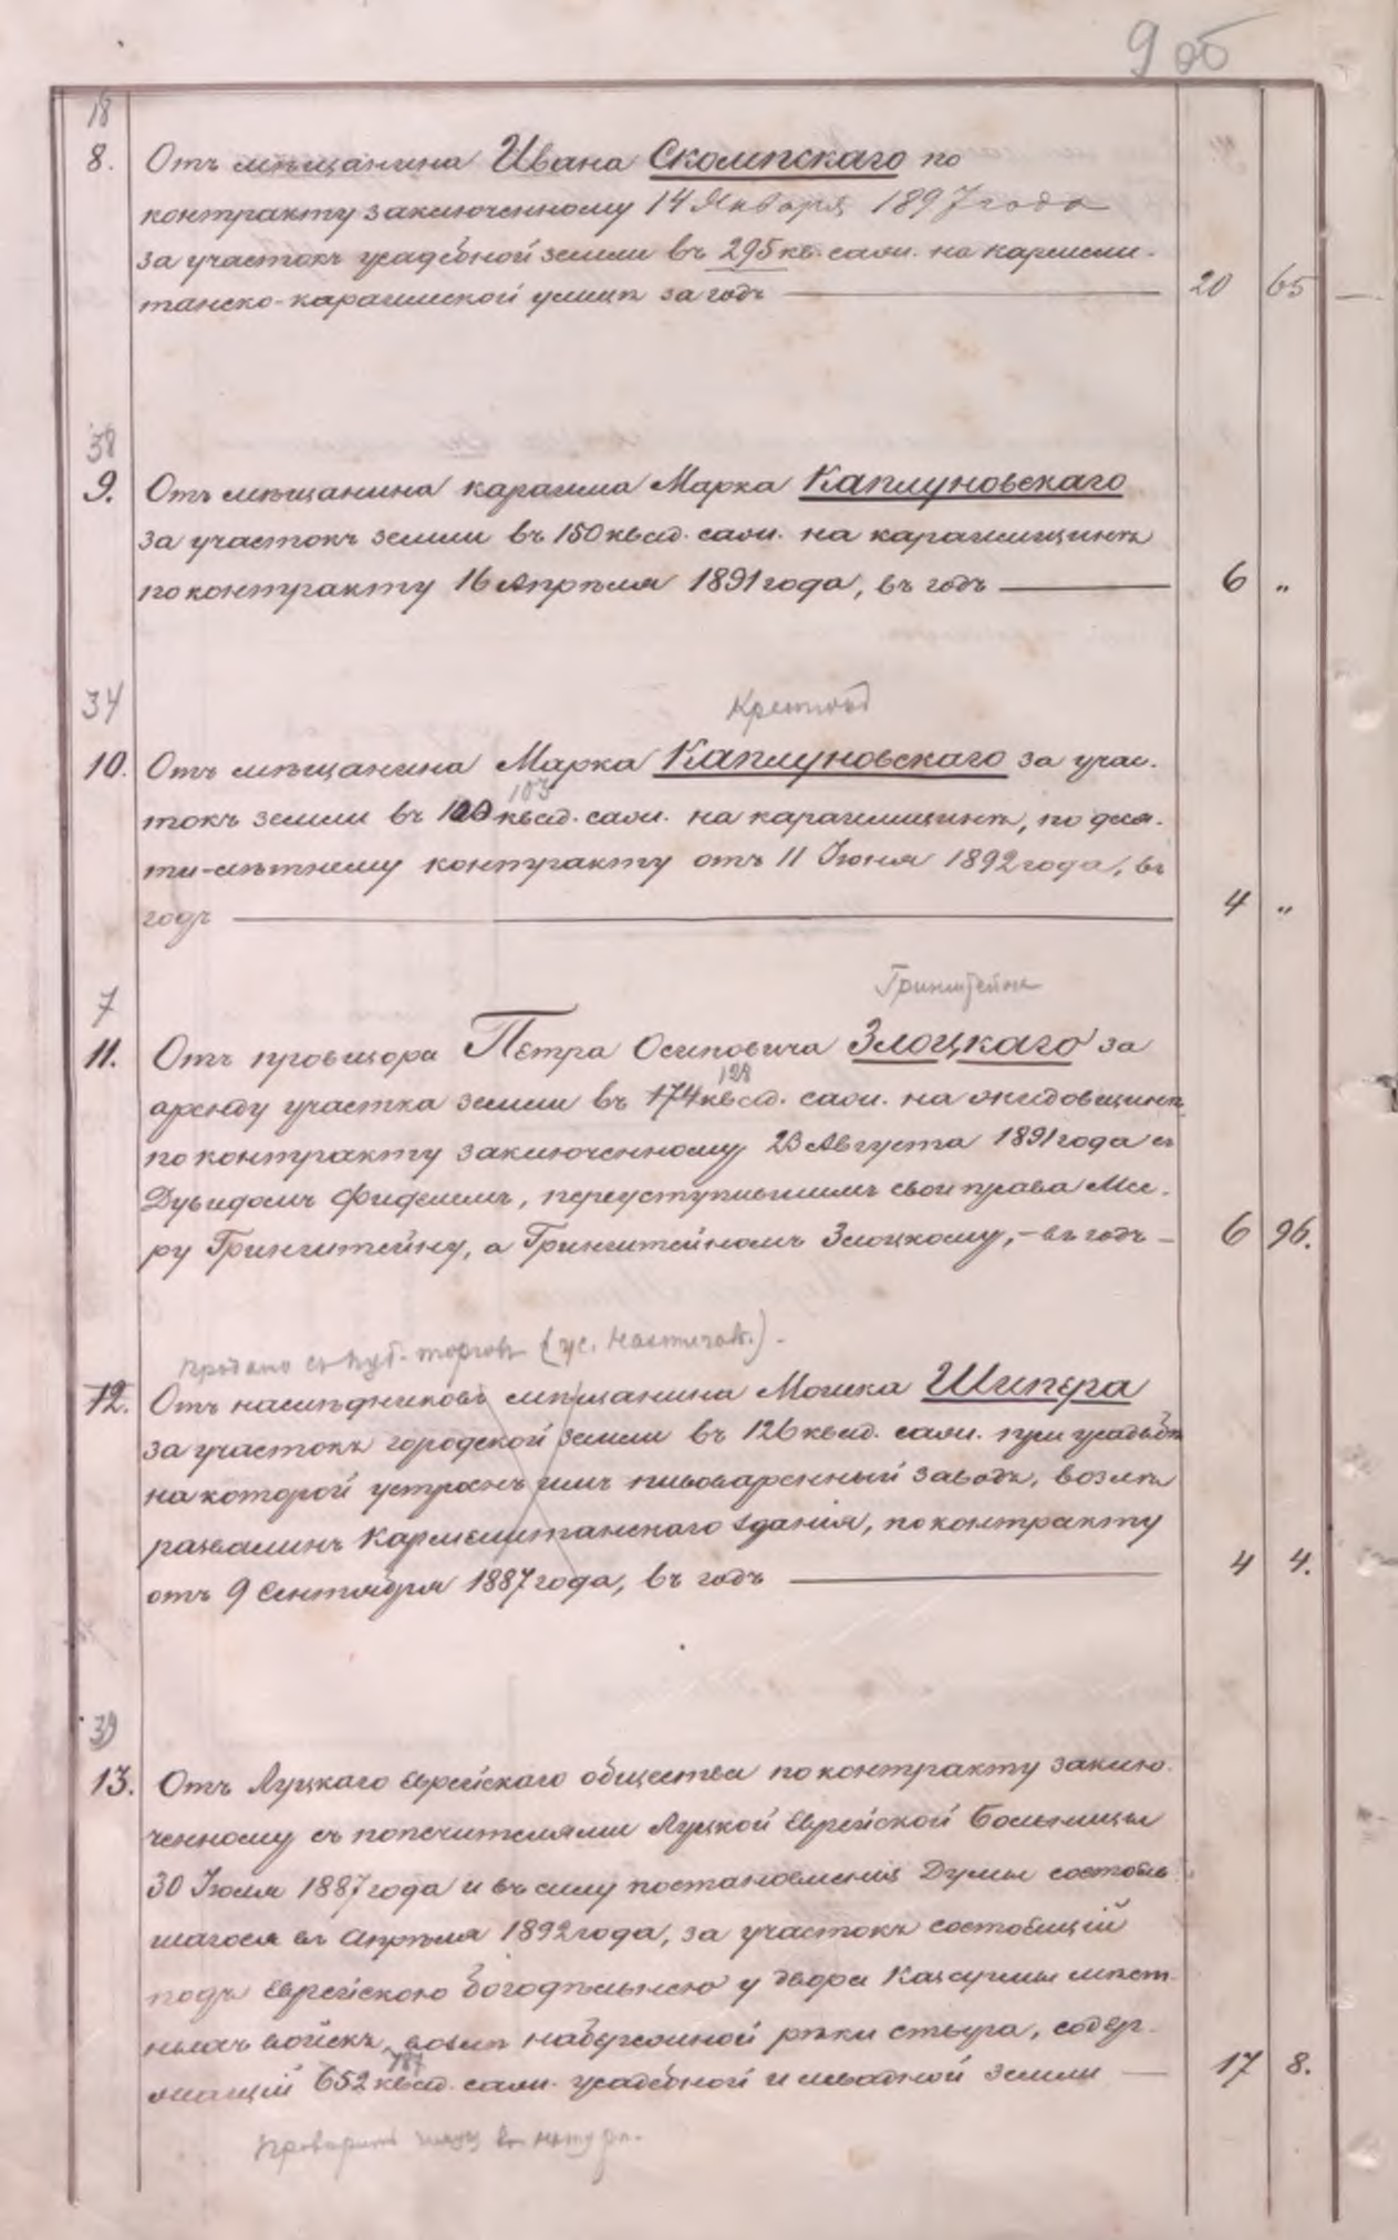 9 об
18
8. Отъ мѣщанина Ивана Скомпскаго по
контракту заключенному 14 Января 1897 года
за участокъ усадебной земли въ 295 кв. саж. на кармели-
танско-караимской улицѣ за годъ 20 65
38
9. Отъ мѣщанина караима Марка Каплуновскаго
за участокъ земли въ 150 квад. саж. на караимщинѣ
по контракту 16 Апрѣля 1891 года, въ годъ 6 "
34
10. Отъ мѣщанина Марка Каплуновскаго за учас-
103
токъ земли въ 100 квад. саж. на караимщинѣ, по деся-
ти-лѣтнему контракту отъ 11 Іюня 1892 года, въ
годъ 4 "
Гринштейна
7
11. Отъ провизора Петра Осиповича Злоцкаго за
128
аренду участка земли въ 174 квад. саж. на жидовщинѣ
по контракту заключенному 23 Августа 1891 года съ
Дувидомъ Фиделемъ, переуступившимъ свои права Ме-
ру Гринштейну, а Гринштейномъ Злоцкому, – въ годъ 6 96.
Продано съ пуб. торговъ
12. Отъ наслѣдниковъ мѣщанина Мошка Шипера
за участокъ городской земли въ 126 квад. саж. при усадьбѣ
на которой устроенъ имъ пивоваренный заводъ, возлѣ
развалинъ Кармелитанскаго зданія, по контракту
отъ 9 Сентября 1887 года, въ годъ 4 4.
39
13. Отъ Луцкаго Еврейскаго общества по контракту заклю-
ченному съ попечителями Луцкой Еврейской Больницы
30 Іюля 1887 года и въ силу постановленія Думы состояв-
шагося въ Апрѣля 1892 года, за участокъ состоящій
подъ Еврейскою богодѣльнею у двора Казармы мѣст-
ныхъ войскъ, возлѣ набережной рѣки Стыра, содер-
787
жащій 652 квад. саж. усадебной и земли 17 8.
Проверить въ натурѣ.